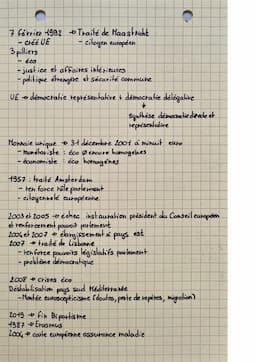 7 février 1992 → Traité de Maastricht
- créé UE - citoyen européen
3 piliers
- éco
- justice et affaires intérieures
- politique étrangère et sécurité commune
UE → démocratie représentative + démocratie délégative
↓
synthèse démocratie directe et
représentative
Monnaie unique → 31 décembre 2001 à minuit euro
- Monétariste : éco Ø encore homogènes
- économiste : éco homogènes
1997 : traité Amsterdam
- renforce rôle parlement
- citoyenneté européenne
2003 et 2005 → échec instauration président du Conseil européen
et renforcement pouvoir parlement
2004 et 2007 → élargissement à pays est
2007 → traité de Lisbonne
- renforce pouvoirs législatifs parlement
- problème démocratique
2008 → crises éco
Déstabilisation pays sud Méditerranée
- Montée euroscepticisme (doutes, perte de repères, migration)
2019 → fin Bipartisme
1987 → Erasmus
2004 → carte européenne assurance maladie